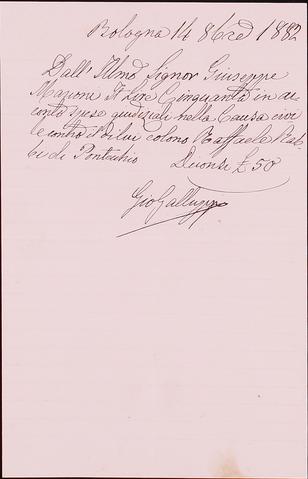 Bologna 14 8bre 1882
Dall' Illmo Signor Giuseppe
Mazioni It Lire Cinquanta in ac
conto spese giudiziali nella Causa civi
le contro il di lui colono Raffaele
di Pontecchio Diconsi £ 50
Gio Galluppi